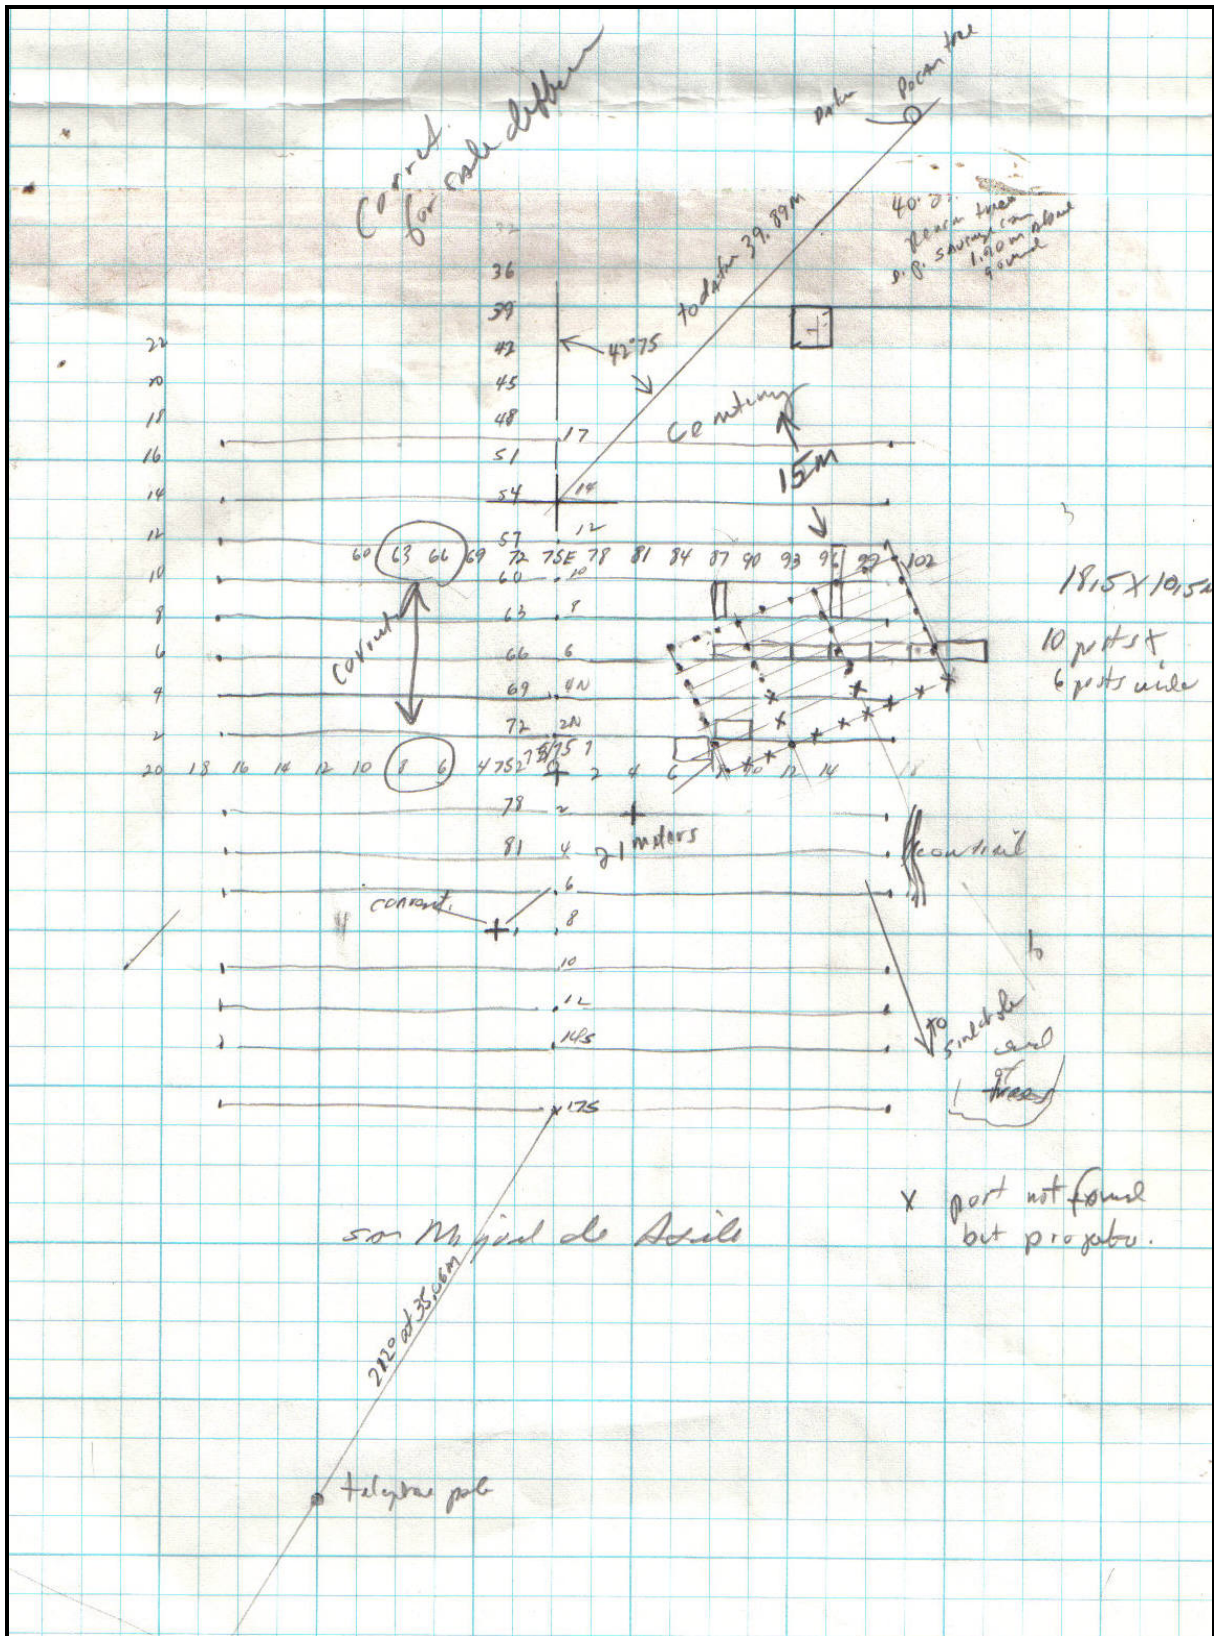 Correct.
for scale differen
Datum
Pecan tree
to datum 39.89m
40.
Pecan tree
1.90 m above
ground
36
39
42
45
48
51
54
57
60
63
66
69
72
42°75
Cemetery
15m
22
20
18
16
14
12
10
8
6
4
2
17
14
12
10
8
6
4N
2N
60 63 66 69 72 75E 78 81 84 87 90 93 96 99 102
18.5 X 10.5m
10 posts X
6 posts wide
convent
20 18 16 14 12 10 8 6 4 2 2 4 6 10 12 14 18
75
78
81
2
4
6
8
10
12
14S
17S
21 meters
convent.
convent
to
to
sinkhole
and
of
trees
X post not found
but projected.
San Miguel de Asile
212° at 35.06m
telephone pole